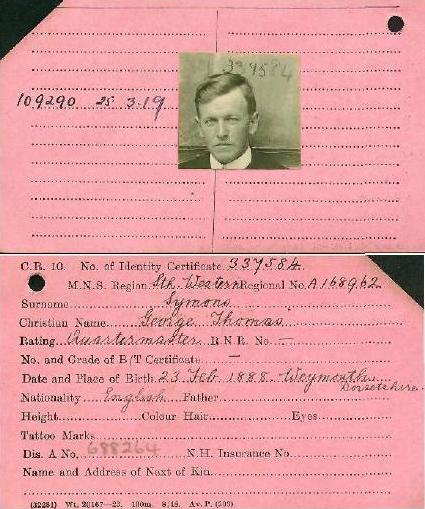 337584
109290 25.3.19
C.R. 10. No. of Identity Certificate 337584.
M.N.S. Region Sth. Western Regional No. A168962
Surname Symons
Christian Name George Thomas
Rating Quartermaster R.N.R. No. —
No. and Grade of B/T Certificate —
Date and Place of Birth 23 Feb 1888 Weymouth Dorsetshire
Nationality English Father
Height Colour Hair Eyes
Tattoo Marks
Dis. A No. 688264 N.H. Insurance No.
Name and Address of Next of Kin
(32284) Wt. 20167—23. 100m. 8/18. Av. P. (509)